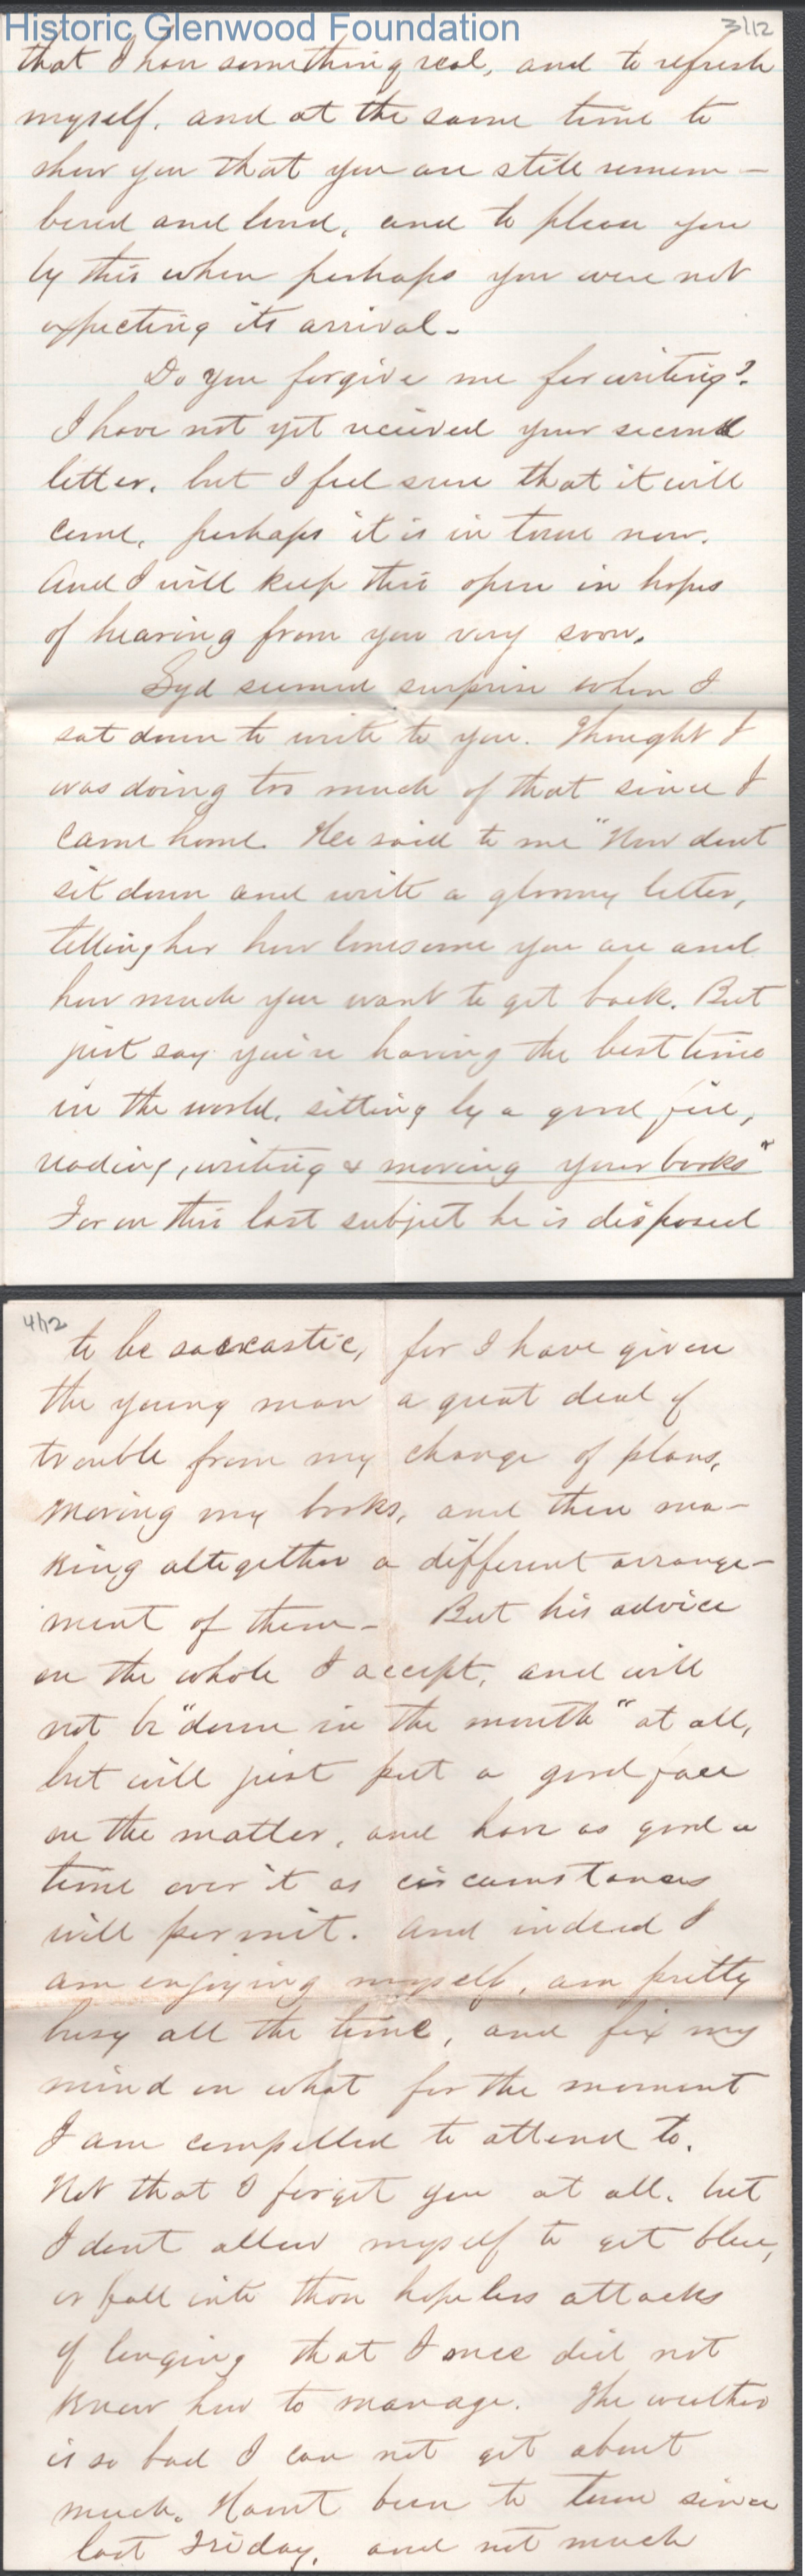 Historic Glenwood Foundation
3/12
that I have something real, and to refresh
myself, and at the same time to
show you that you are still remem-
bered and loved, and to please you
by this when perhaps you were not
expecting its arrival-
Do you forgive me for writing?
I have not yet recieved your second
letter, but I feel sure that it will
come, perhaps it is in town now.
And I will keep this open in hopes
of hearing from you very soon.
Syd seemed surprise when I
sat down to write to you. Thought I
was doing too much of that since I
came home. He said to me "Now dont
sit down and write a gloomy letter,
telling her how lonesome you are and
how much you want to get back. But
just say you're having the best time
in the world, sitting by a good fire,
reading, writing & moving your books"
For on this last subject he is disposed
4/12
to be sarcastic, for I have given
the young man a great deal of
trouble from my change of plans,
moving my books, and then ma-
king altogether a different arrange-
ment of them- But his advice
on the whole I accept, and will
not be "down in the mouth" at all,
but will just put a good face
on the matter, and have as good a
time over it as circumstances
will permit. And indeed I
am enjoying myself, am pretty
busy all the time, and fix my
mind on what for the moment
I am compelled to attend to.
Not that I forget you at all, but
I dont allow myself to get blue,
or fall into those hopeless attacks
of longing that I once did not
know how to manage. The weather
is so bad I can not get about
much. Havnt been to town since
last Friday, and not much